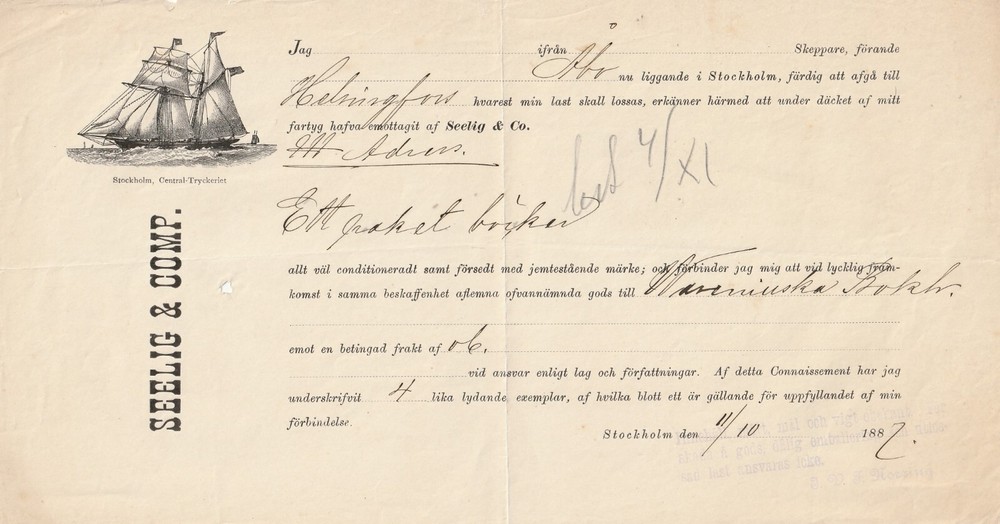 Jag ifrån Åbo Skeppare, förande
nu liggande i Stockholm, färdig att afgå till
Helsingfors hvarest min last skall lossas, erkänner härmed att under däcket af mitt
fartyg hafva emottagit af Seelig & Co.
Adress.
4/XI
Stockholm, Central-Tryckeriet
SEELIG & COMP.
Ett paket böcker
allt väl conditioneradt samt försedt med jemtestående märke; och förbinder jag mig att vid lycklig fram-
komst i samma beskaffenhet aflemna ofvannämnda gods till Wareniuska Bokh.
emot en betingad frakt af ob.
vid ansvar enligt lag och författningar. Af detta Connaissement har jag
underskrifvit 4 lika lydande exemplar, af hvilka blott ett är gällande för uppfyllandet af min
förbindelse.
Stockholm den 11/10 1887.
ansvaras icke.